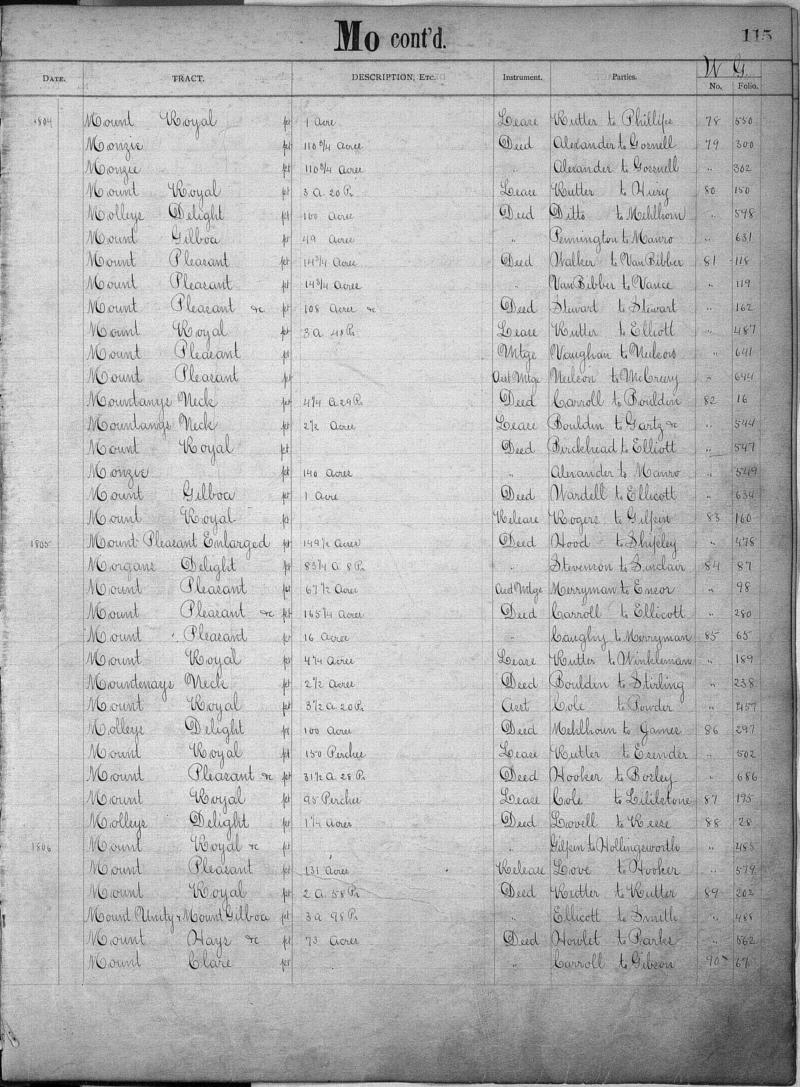 Mo cont'd. 115
DATE. TRACT. DESCRIPTION, ETC. Instrument. Parties. W G
No. Folio.
1804 Mount Royal pt 1 Acre Lease Rutter to Phillips 78 550
Monzie pt 110 3/4 Acres Deed Alexander to Gornell 79 300
Monzie pt 110 3/4 Acres " Alexander to Gornell " 302
Mount Royal pt 3 a 20 Ps Lease Rutter to 80 150
Molleys Delight pt 100 Acres Deed Ditto to Mehlhorn " 598
Mount Gilboa pt 49 Acres " Pennington to Manro " 631
Mount Pleasant pt 14 3/4 Acres Deed Walker to VanBibber 81 118
Mount Pleasant pt 14 3/4 Acres " VanBibber to Vance " 119
Mount Pleasant &c pt 108 Acres &c Deed Stewart to Stewart " 162
Mount Royal pt 3 a 48 Ps Lease Rutter to Ellicott " 487
Mount Pleasant pt Mtge Vaughan to " 641
Mount Pleasant pt Asst Mtge Neilson to McCreery " 644
Mountanys Neck pt 4 1/4 a 29 Ps Deed Carroll to Bouldin 82 16
Mountangs Neck pt 2 1/2 Acres Lease Bouldin to Gartz &c " 544
Mount Royal pt Deed Birckhead to Ellicott " 547
Monzie pt 140 Acres " Alexander to Manro " 549
Mount Gilboa pt 1 Acre Deed Wardell to Ellicott " 634
Mount Royal pt Release Rogers to Gilpin 83 160
1805 Mount Pleasant Enlarged pt 149 1/2 Acres Deed Hood to Shipley " 478
Morgans Delight pt 83 1/4 a 8 Ps " Stevenson to Sinclair 84 87
Mount Pleasant pt 67 1/2 Acres Asst Mtge Merryman to Ensor " 98
Mount Pleasant &c pt 165 1/4 Acres Deed Carroll to Ellicott " 280
Mount Pleasant pt 16 Acres " Caughy to Merryman 85 65
Mount Royal pt 4 1/4 Acres Lease Rutter to Winkleman " 189
Mountenays Neck pt 2 1/2 Acres Deed Bouldin to Stirling " 238
Mount Royal pt 3 1/2 a 20 Ps Asst Cole to Powder " 457
Molleys Delight pt 100 Acres Deed Mehlhorn to 86 297
Mount Royal pt 150 Perches Lease Rutter to Esender " 502
Mount Pleasant &c pt 31 1/2 a 28 Ps Deed Hooker to Bosley " 686
Mount Royal pt 95 Perches Lease Cole to 87 195
Molleys Delight pt 1 1/4 Acres Deed Lovell to Reese 88 28
1806 Mount Royal &c pt " Gilpin to Hollingsworth " 483
Mount Pleasant pt 131 Acres Release Love to Hooker " 579
Mount Royal pt 2 a 58 Ps Deed Rutter to Rutter 89 202
Mount Unity & Mount Gilboa pt 3 a 98 Ps " Ellicott to Smith " 488
Mount Hays &c pt 73 Acres Deed Howlet to Parks " 562
Mount Clare pt " Carroll to Gibson 90 67